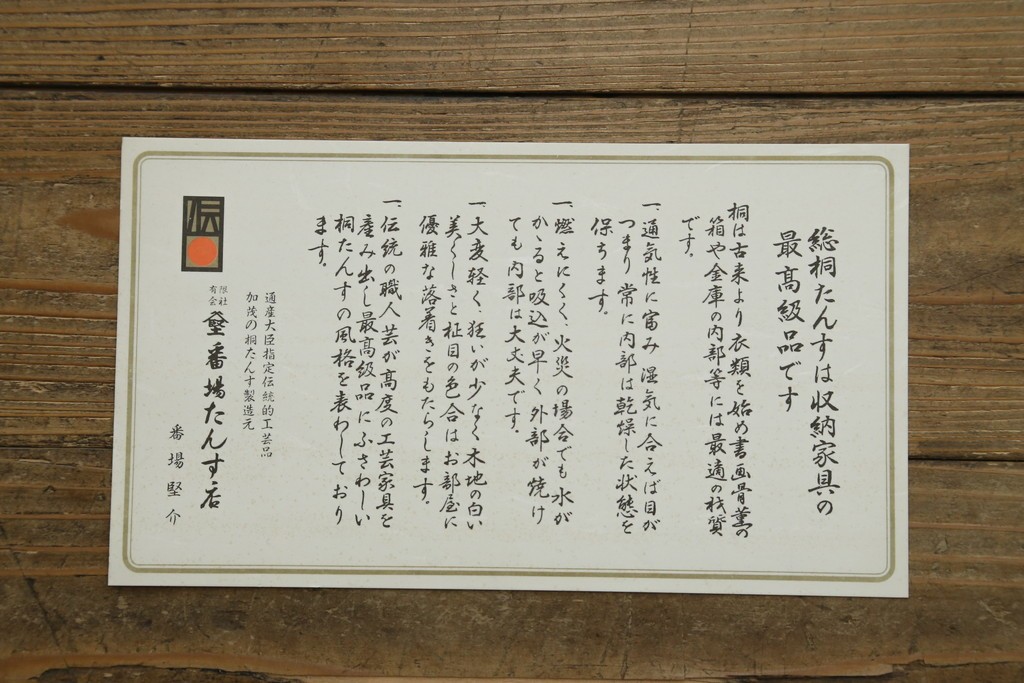 総桐たんすは収納家具の
最高級品です
桐は古来より衣類を始め書画骨董の
箱や金庫の内部等には最適の材質
です。
一、通気性に富み湿気に合えば目が
つまり常に内部は乾燥した状態を
保ちます。
一、燃えにくく、火災の場合でも水が
かゝると吸込が早く外部が焼け
ても内部は大丈夫です。
一、大変軽く、狂いが少なく木地の白い
美しさと柾目の色合はお部屋に
優雅な落着きをもたらします。
一、伝統の職人芸が高度の工芸家具を
産み出し最高級品にふさわしい
桐たんすの風格を表わしており
ます。
通産大臣指定伝統的工芸品
加茂の桐たんす製造元
有限会社 番場たんす店
番場堅介
伝